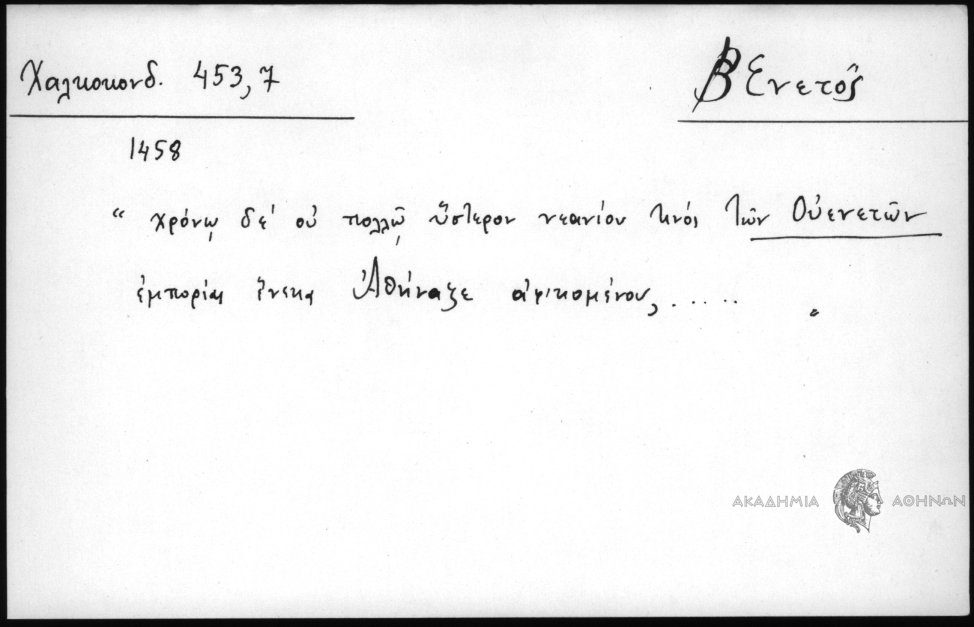 Χαλκοκονδ. 453,7
Βενετός
1458
“ χρόνῳ δέ οὐ πολλῷ ὕστερον νεανίου τινός τῶν Οὐενετῶν
ἐμπορίας ἕνεκα Ἀθήναζε ἀφικομένου, ..... ”
ΑΚΑΔΗΜΙΑ ΑΘΗΝΩΝ